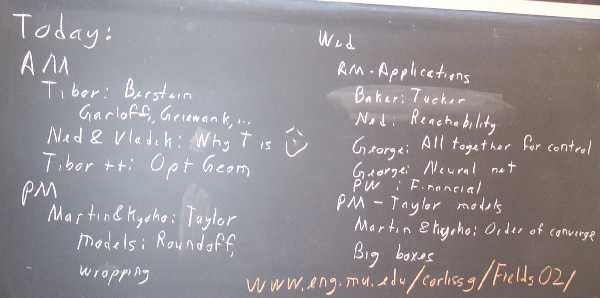 Today:
AM
Tibor: Berstein
Garloff, Griewank, ...
Ned & Vladik: Why T is
Tibor ++: Opt Geom
PM
Martin & Kyoko: Taylor
Models: Roundoff,
wrapping
Wed
AM - Applications
Baker: Tucker
Ned: Reachability
George: All together for control
George: Neural net
PW: Financial
PM - Taylor models
Martin & Kyoko: Order of converge
Big boxes
www.eng.mu.edu/corlissg/Fields02/